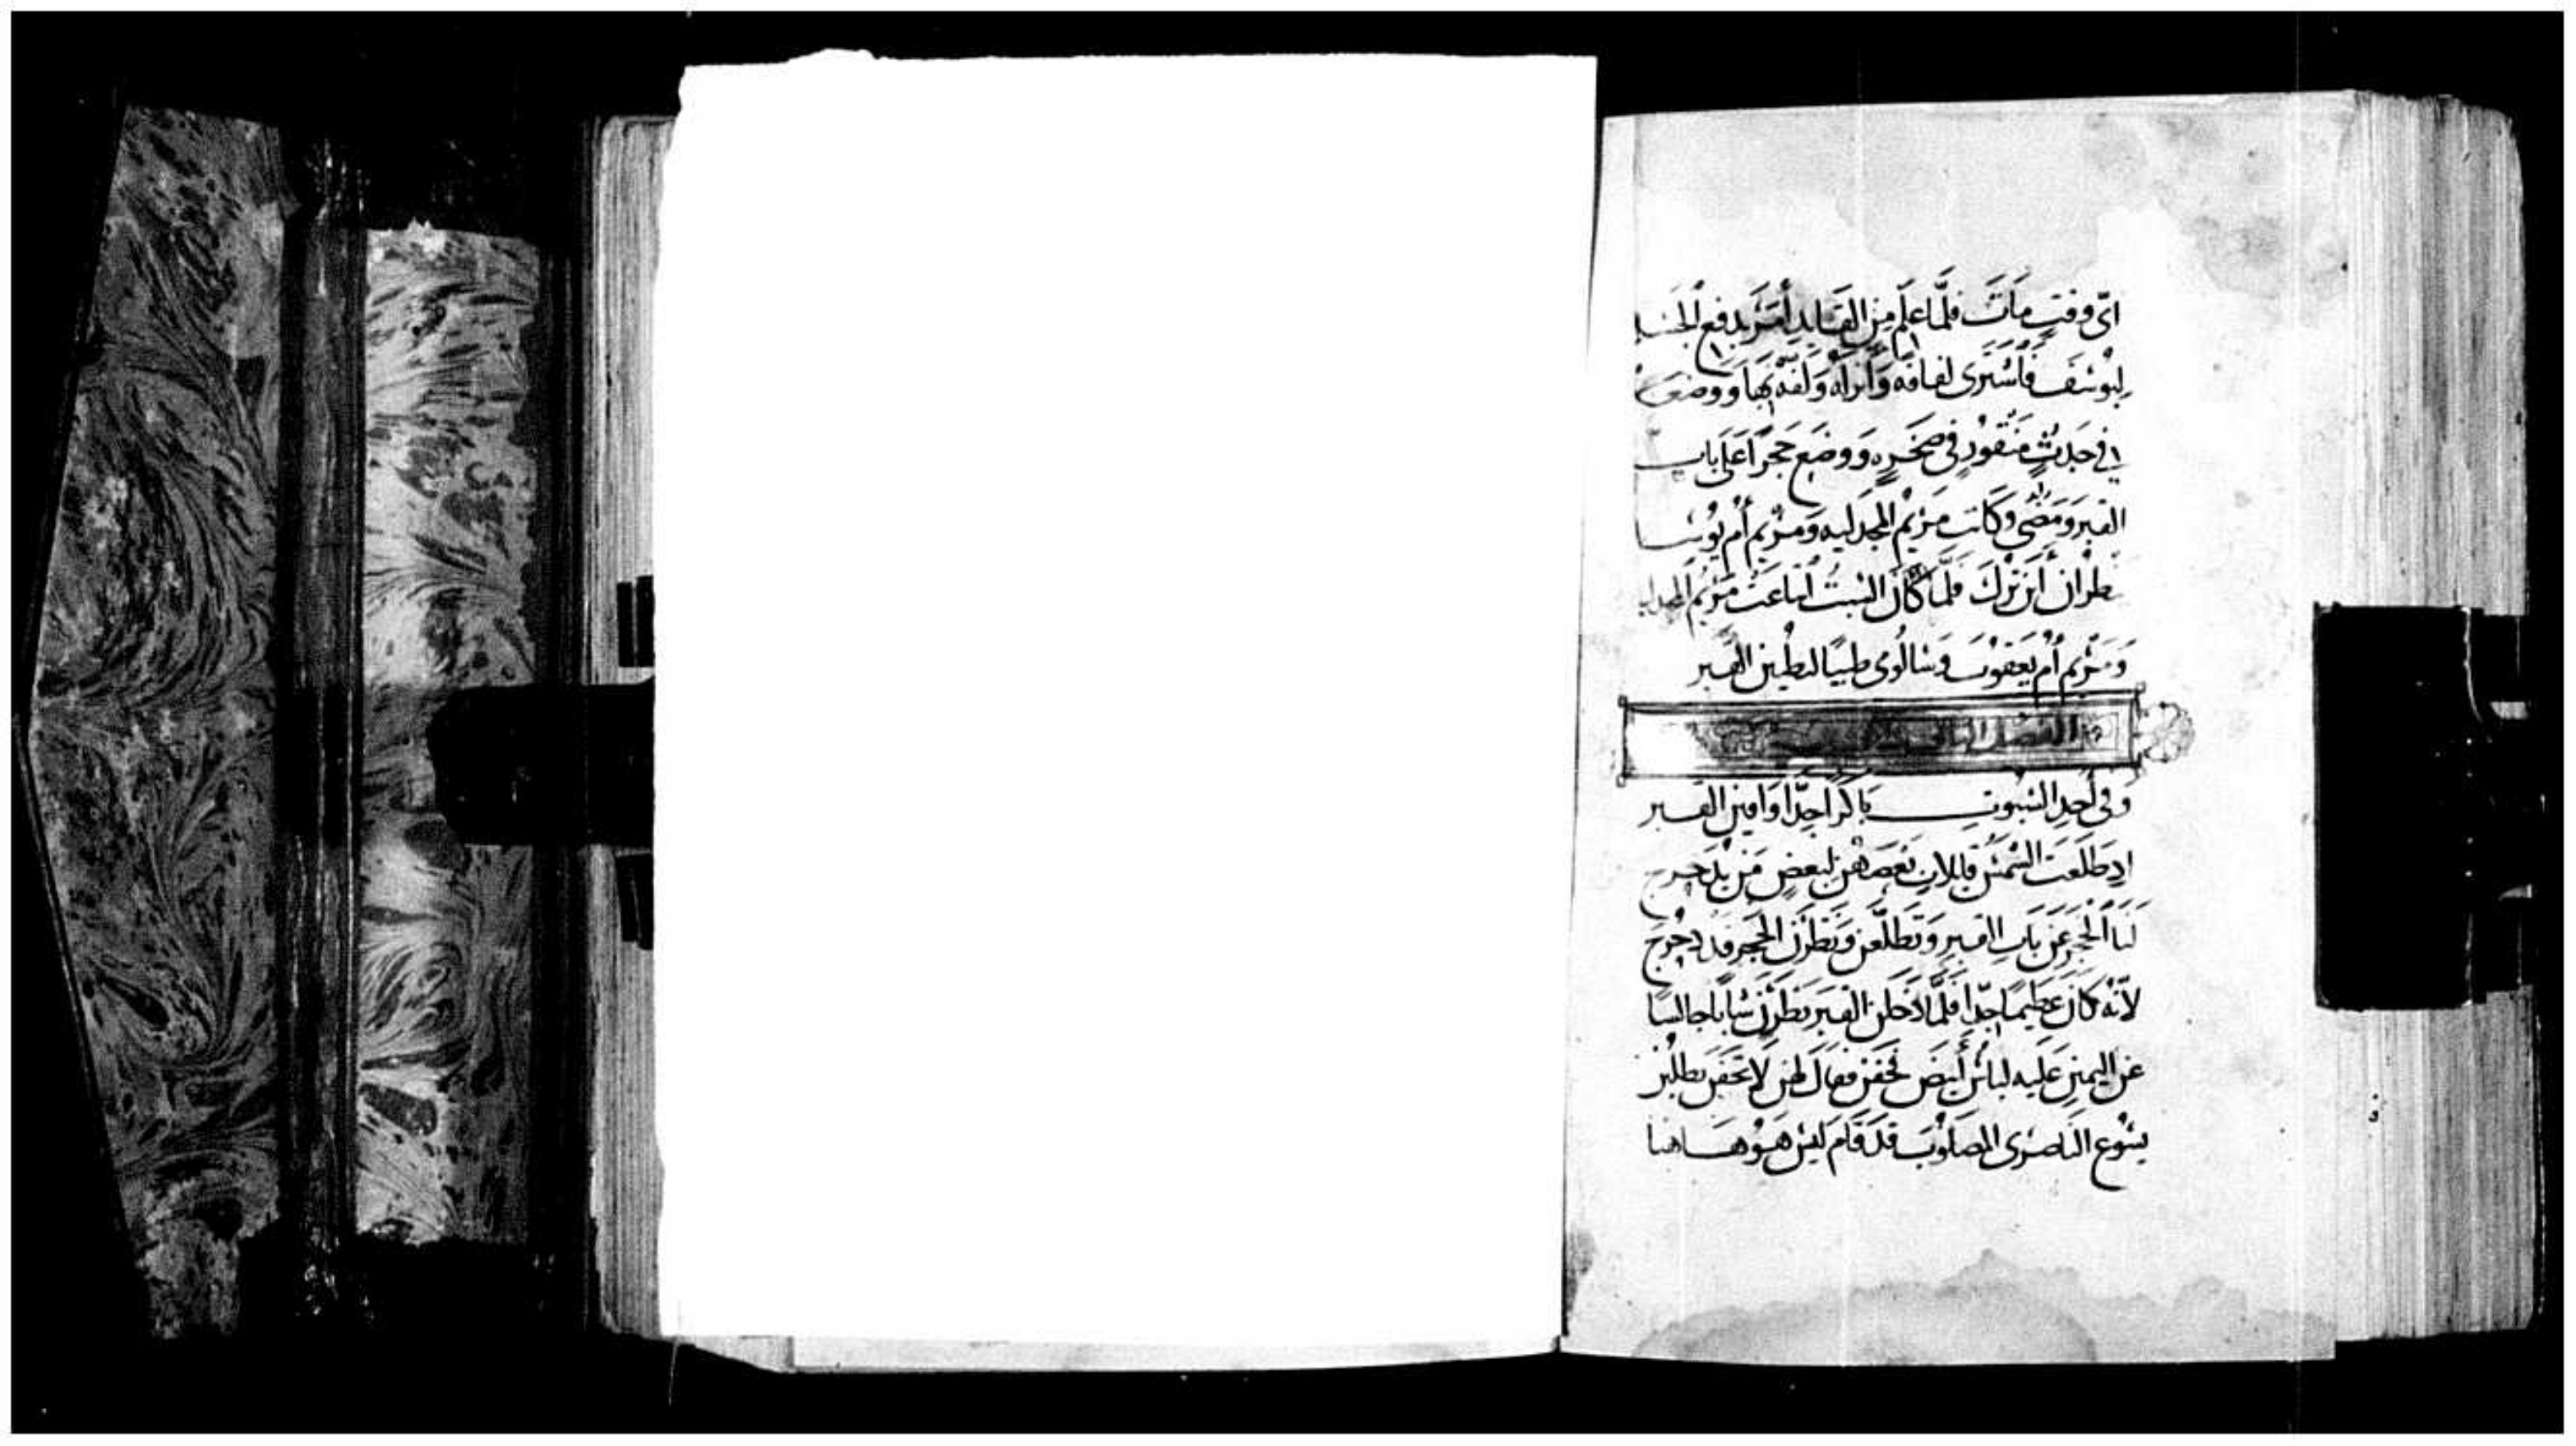 اىّ وقتٍ مَاتَ فلمَّا علم مِن القَايدِ أمَرَ بدفع الجَسَد
ليُوسُفَ فَاشترى لفافه وَأنزلَه وَلفّه بِهَا وَوضعَ
في جَدَثٍ مَنقورٍ في صَخرةٍ وَوضعَ حَجراً عَلى باب
القبر وَمَضى وكانت مَريم المجدليه وَمَريم أم يُوسا
ينظران أين تُرك فلمَّا كَانَ السبتُ ابتاعَت مَريم المجدليه
وَمَريم أم يَعقوب وَسَالُومى طيبًا لتطيين القبر
الفصل
وَفى أحدِ السُبوت بَاكراً جِدّاً وَافين القبر
اد طَلعَت الشمسُ قايلات بَعضهُن لبَعضٍ مَن يدَحرج
لنَا الحَجر عَن بَاب القبرِ وَتطلّعن وَنظرن الحجر قد دحرج
لأنه كان عَظيماً جدّاً فلمَّا دَخلن القبرَ نظرن شاباً جالساً
عن اليمين عَليه لباسٌ أبيضَ فخفن فقال لهن لا تخفن تطلبن
يسُوع النّاصرى المصلوبَ قد قام ليسَ هوُ هَاهنا